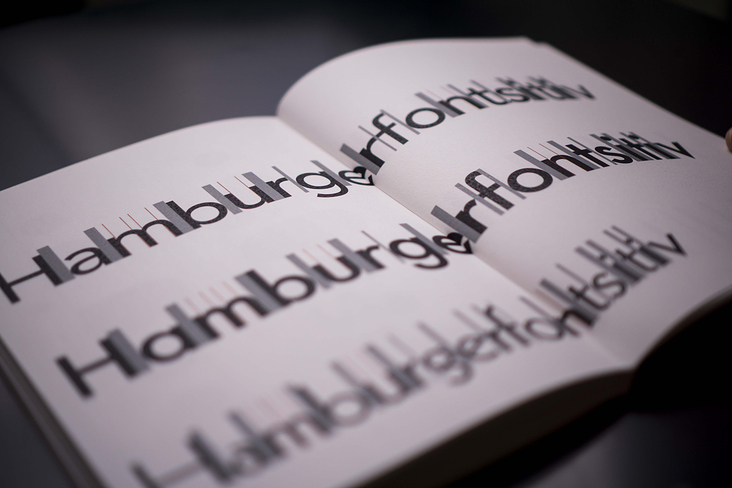 Hamburgerfontsitiv
Hamburgerfontsitiv
Hamburgerfontsitiv